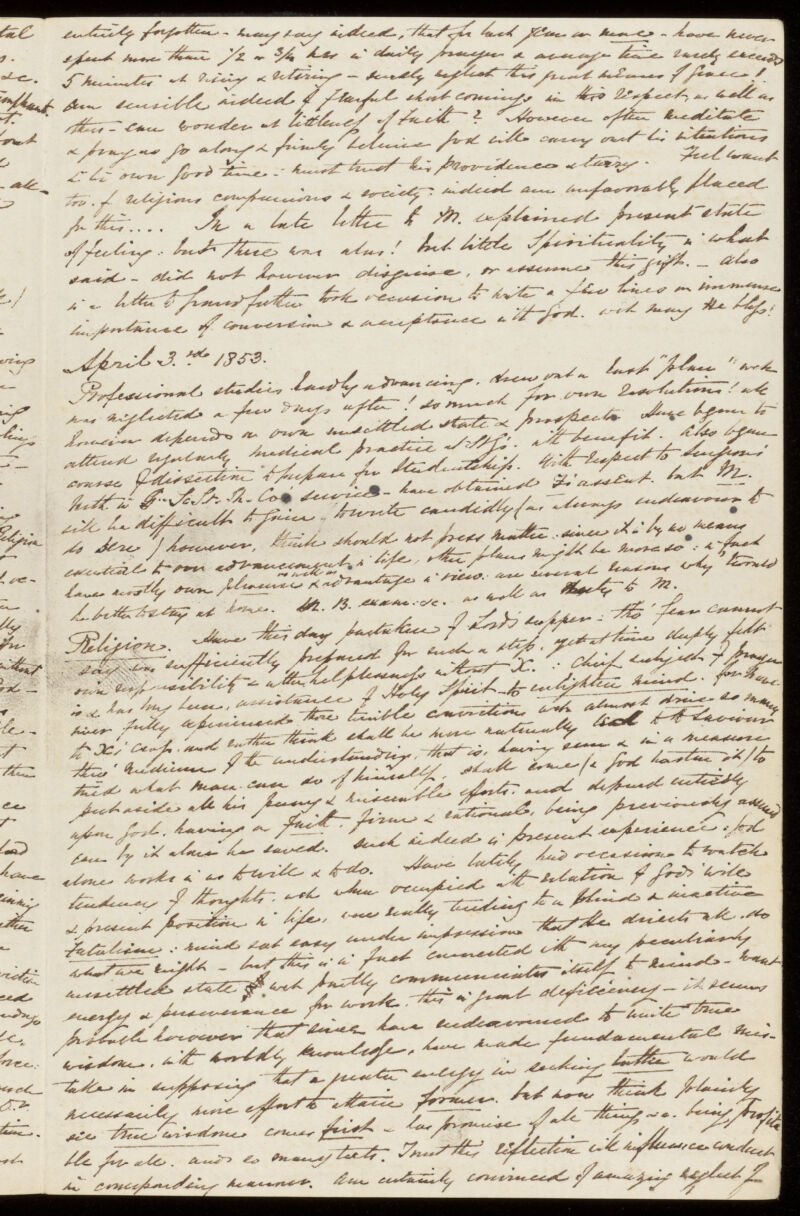 entirely forgotten - may say indeed, that for last year or more - have never
spent more than 1/2 or 3/4 hrs in daily prayer & average time rarely exceeds
5 minutes at rising & retiring - surely neglect this great means of Grace!
am sensible indeed of fearful short comings in this respect as well as
others - can wonder at littleness of faith? However often meditate
& pray as go along & firmly believe God will carry out his intentions
in his own good time: must trust his providence & tarry. Feel want
too of religious companions & society: indeed am unfavorably placed
for this.... In a late letter to M. explained present state
of feeling: but there was alas! but little Spirituality in what
said - did not however disguise, or assume this gift. - Also
in a letter to Grandfather took occasion to write a few lines on immense
importance of conversion & acceptance with God. wch may He bless!
April 3.rd 1853.
Professional studies hardly advancing. drew out a last "plan" wch
was neglected a few days after! so much for own resolutions! all
however depends on own unsettled state & prospects. Have begun to
attend regularly medical practice at St G's. with benefit. also begun
course of dissection to prepare for Studentship. With respect to Surgeon's
berth in G. Sc. St. N. Co's service - have obtained F's assent. but M.
will be difficult to gain - to write candidly (as always endeavour to
do here) however, think should not press matter: since it is by no means
essential to own advancement in life, other plans might be more so: in fact
have mostly own pleasure as well as advantage in view. are several reasons why 'twould
be better to stay at home. M.B. exam: &c. as well as duty to M.
Religion. Have this day partaken of Lord's supper: tho' fear cannot
say am sufficiently prepared for such a step. yet at time deeply felt
own responsibility & utter helplessness without X.: Chief subject of prayer
is & has long been, assistance of Holy Spirit - to enlighten mind. for have
never fully experienced those terrible conviction wch almost drive so many
to X's cross. and rather think shall be more naturally led to the Saviour
thro' medium of the understanding, that is, having seen & in a measure
tried what man can do of himself, shall come (& God hasten it) to
put aside all his puny & miserable efforts. and depend entirely
upon God. having a Faith. firm & rational, being previously assured
can by it alone be saved. such indeed is present experience: God
alone works in us to will & to do. Have lately had occasion to watch
tendency of thoughts, wch when occupied with relation of God's will
& present position in life, were really tending to a blind & inactive
Fatalism: mind sat easy under impression that He directs all. do
what we might - but this is in fact connected with my peculiarly
unsettled state wch partly communicates itself to mind - want
energy & perseverance for work. this is great deficiency - it seems
probable however that since have endeavoured to unite true
wisdom, with worldly knowledge, have made fundamental mis-
take in supposing that a greater energy in seeking latter would
necessarily more effort to attain former. but now think plainly
see true wisdom comes first & has promise of all things &c. being profita
ble for all. and so many texts. Trust this reflection will influence conduct
in corresponding manner. Am certainly convinced of amazing neglect of